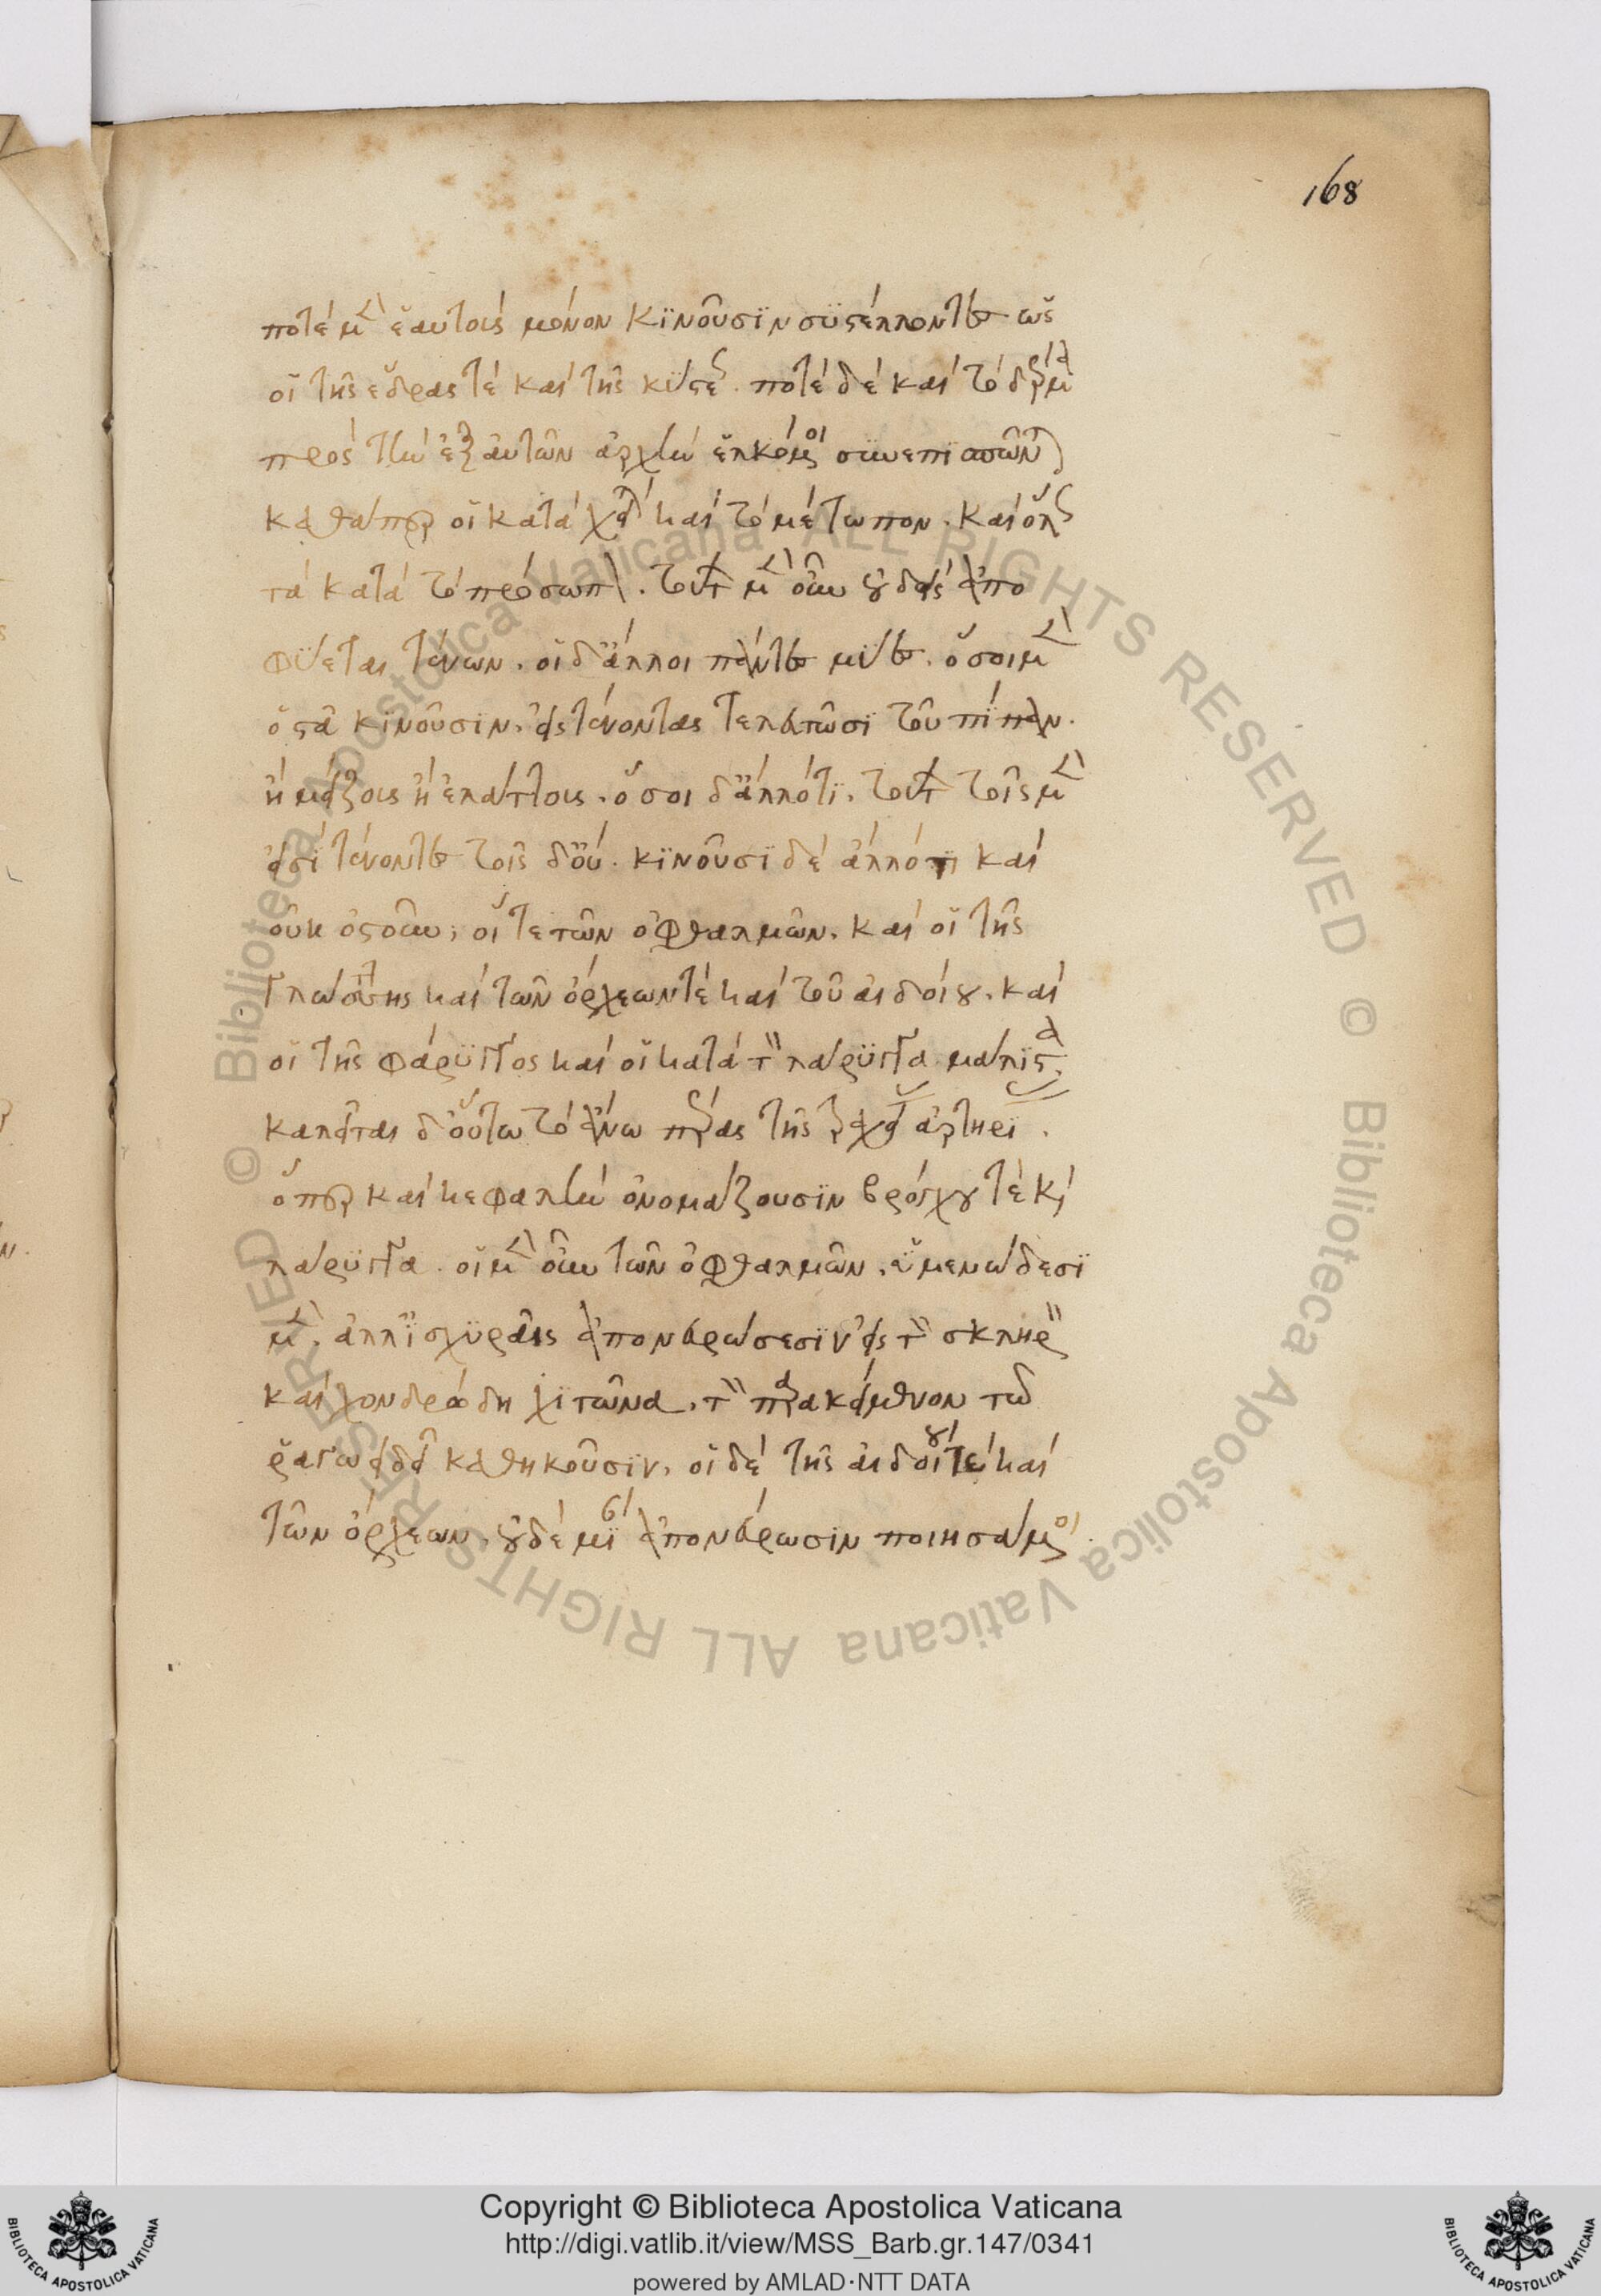 168
ποτὲ μὲν ἑαυτοὺς μόνον κϊνοῦσϊν σϋστέλλοντες ὡς
οἱ τῆς ἕδρας τὲ καὶ τῆς κύστεως. ποτὲ δὲ καὶ τὸ δέρμα
πρὸς τὴν ἐξ αὐτῶν ἀρχὴν ἑλκόμενοι συνεπϊσπῶνται
καθάπερ οἱ κατὰ χείλη καὶ τὸ μέτωπον. καὶ ὅλως
τὰ κατὰ τὸ πρόσωπον. τούτων μὲν οὖν οὐδεὶς ἀπο
φύεται τένων. οἱ δ' ἄλλοι πάντες μύες. ὅσοι μὲν
ὀστᾶ κϊνοῦσϊν, εἰς τένοντας τελευτῶσϊ τοὐπίπαν.
ἢ μείζους ἢ ἐλάττους. ὅσοι δ' ἄλλό τϊ. τούτων τοῖς μὲν
εἰσὶ τένοντες τοῖς δ' οὔ. κϊνοῦσϊ δὲ ἄλλό τι καὶ
οὐκ ὀστοῦν, οἵ τε τῶν ὀφθαλμῶν. καὶ οἱ τῆς
γλώττης καὶ τῶν ὄρχεων τὲ καὶ τοῦ αἰδοίου. καὶ
οἱ τῆς φάρϋγγος καὶ οἱ κατὰ τὸν λάρϋγγα μάλιστα.
καλεῖται δ' οὕτω τὸ ἄνω πέρας τῆς τραχείας ἀρτηρίας.
ὅπερ καὶ κεφαλὴν ὀνομάζουσϊν βρόγχου τὲ καὶ
λάρϋγγα. οἱ μὲν οὖν τῶν ὀφθαλμῶν, ὑμενώδεσϊ
μὲν, ἀλλ' ἰσχϋραῖς ἀπονευρώσεσϊν εἰς τὸν σκληρὸν
καὶ χονδρώδη χϊτῶνα, τὸν περακείμενον τῷ
ῥαγωειδεῖ καθήκουσϊν, οἱ δὲ τῆς αἰδοίου τὲ καὶ
τῶν ὄρχεων, οὐδεμίαν ἀπονεύρωσιν ποιησάμενοι
Copyright © Biblioteca Apostolica Vaticana
http://digi.vatlib.it/view/MSS_Barb.gr.147/0341
powered by AMLAD·NTT DATA